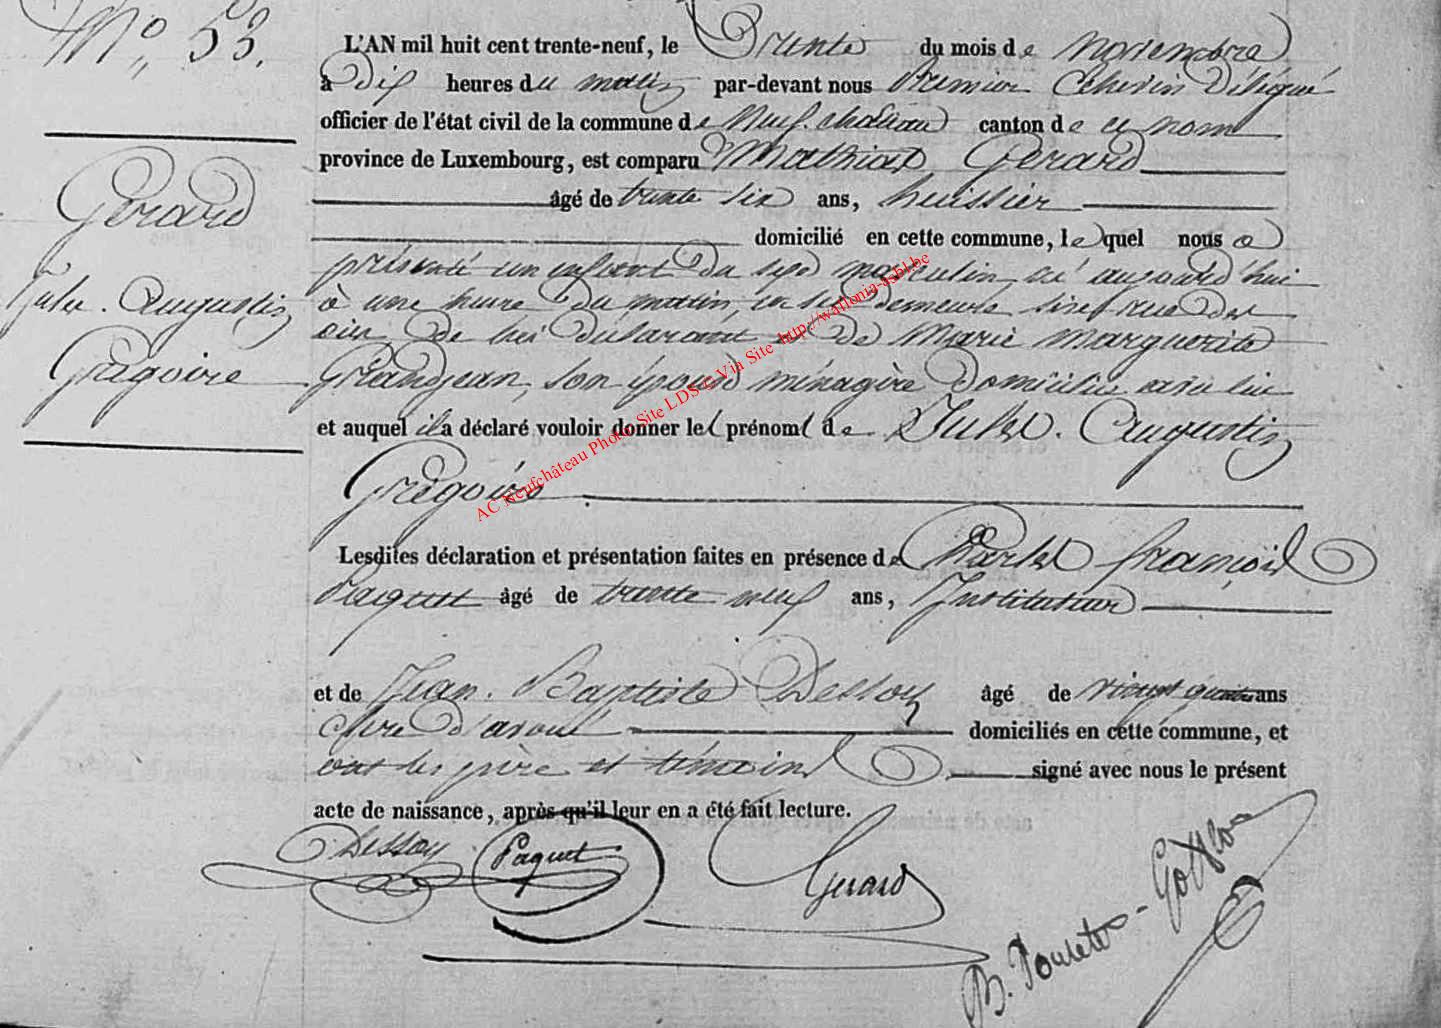 N° 53.
Gérard
Jules. Augustin
Grégoire
L'AN mil huit cent trente-neuf, le Trente du mois de novembre
à dix heures du matin par-devant nous Premier Echevin Délégué
officier de l'état civil de la commune de Neufchateau canton de ce nom
province de Luxembourg, est comparu Mathias Gérard
âgé de trente six ans, huissier
domicilié en cette commune, lequel nous a
présenté un enfant du sexe masculin, né aujourd'hui
à une heure du matin, en sa demeure sise rue des
de lui déclarant et de Marie Marguerite
Grandjean, son épouse ménagère domiciliée
et auquel il a déclaré vouloir donner les prénoms de Jules. Augustin
Grégoire
Lesdites déclaration et présentation faites en présence de Charles François
Paquet âgé de trente neuf ans, Instituteur
et de Jean. Baptiste Dessoy âgé de vingt quatre ans
clerc d'avoué domiciliés en cette commune, et
ont les père et témoins signé avec nous le présent
acte de naissance, après qu'il leur en a été fait lecture.
Dessoy Paquet Gerard
B. Poncelet
AC Neufchâteau Photo Site LDS © Via Site http://wallonia-asbl.be